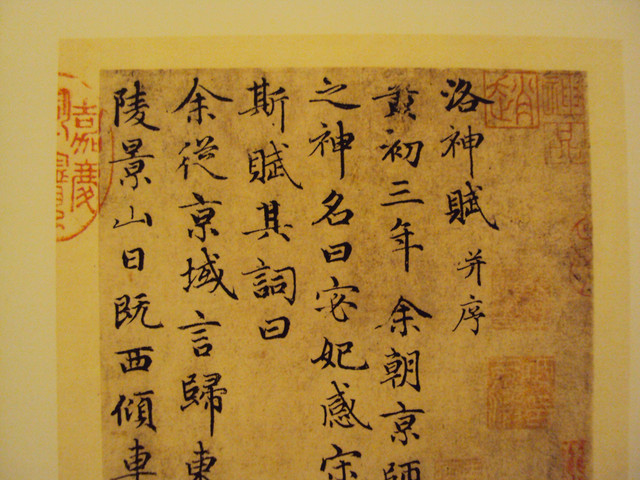 洛神賦并序
黃初三年余朝京師
之神名曰宓妃感宋
斯賦其詞曰
余從京域言歸東
陵景山日既西傾車